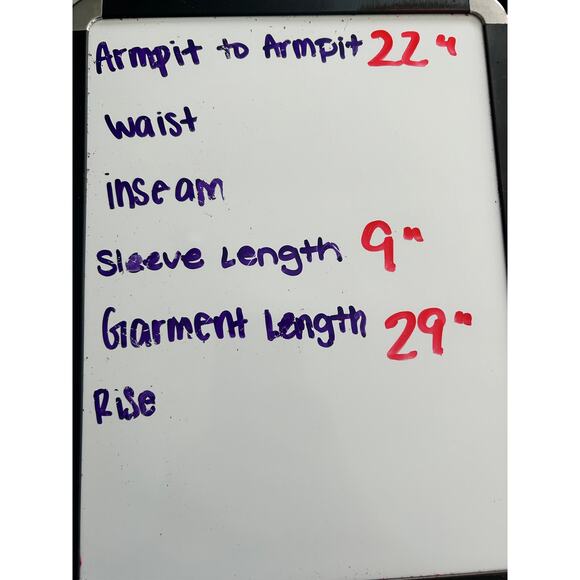 Armpit to Armpit 22"
Waist
inseam
Sleeve Length 9"
Garment Length 29"
Rise